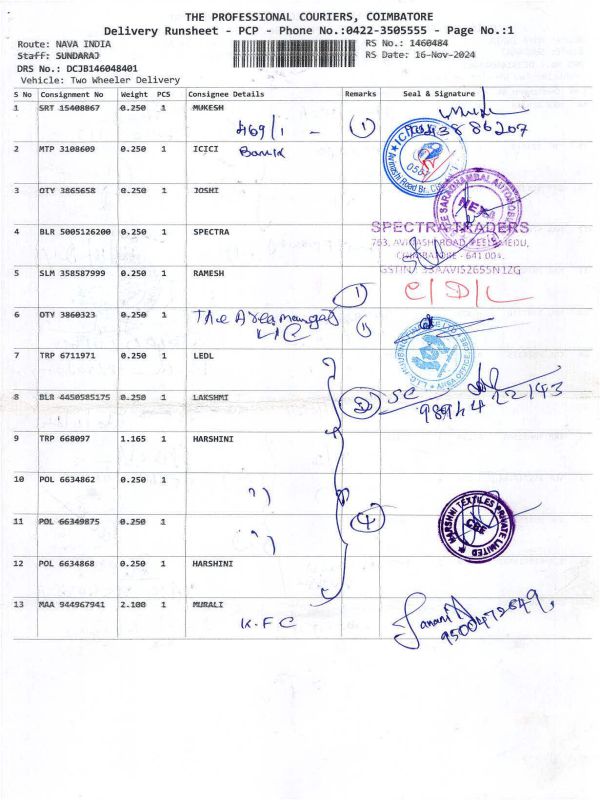 THE PROFESSIONAL COURIERS, COIMBATORE
Delivery Runsheet - PCP - Phone No.:0422-3505555 - Page No.:1
Route: NAVA INDIA
RS No.: 1460484
Staff: SUNDARAJ
RS Date: 16-Nov-2024
DRS No.: DCJB146048401
Vehicle: Two Wheeler Delivery
S No Consignment No Weight PCS Consignee Details Remarks Seal & Signature
1 SRT 15408867 0.250 1 MUKESH
469/1 - 1
2 MTP 3108609 0.250 1 ICICI
Bank
ICICI
058
Avinashi Road Br.
3 OTY 3865658 0.250 1 JOSHI
SARADHAMBAL AUTOMOB
NEXA
4 BLR 5005126200 0.250 1 SPECTRA
SPECTRA TRADERS
763, AVINASHI ROAD, PEELAMEDU,
COIMBATORE - 641 004.
GSTIN: 33AAVIS2655N1ZG
5 SLM 358587999 0.250 1 RAMESH
1 C/D/L
6 OTY 3860323 0.250 1 The Area manager
LIC
HOUSING FINANCE LTD
AREA OFFICE
7 TRP 6711971 0.250 1 LEDL
8 BLR 4450585175 0.250 1 LAKSHMI
2 SC
98944 22143
9 TRP 668097 1.165 1 HARSHINI
10 POL 6634862 0.250 1
11 POL 66349875 0.250 1
4
HARSHNI TEXTILES PRIVATE LIMITED
CBE
12 POL 6634868 0.250 1 HARSHINI
13 MAA 944967941 2.100 1 MURALI
K.F.C
Janani
9500472649